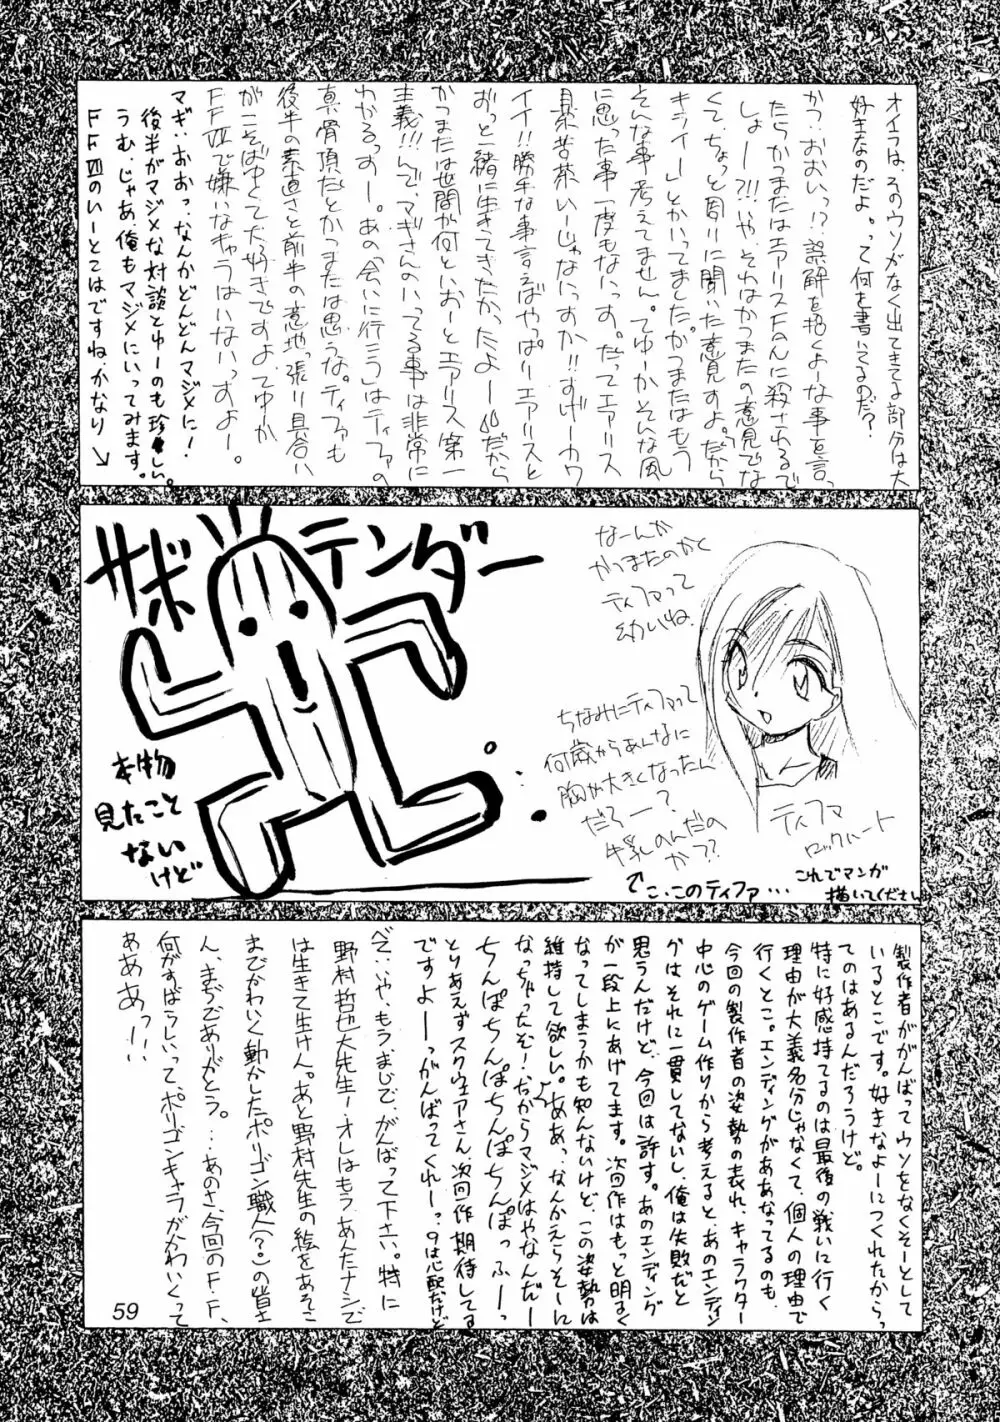 オイラは、そのウソがなく出てきてる部分は大
好きなのだよ。って何を書いてるのだ?
かつ:おおいっ!?誤解を招くよーな事を言っ
たらかつまたはエアリスFanに殺されるで
しょー?!!いや、それはかつまたの意見でな
くて、ちょっと周りに聞いた意見ですよ。だから
キライー」とかいってましたが、かつまたはもう
そんな事考えてません。てゆーかそんな風
に思った事一度もないっす。だってエアリス
具茶苦茶いーじゃないっすか!!すげーカワ
イイ!!勝手な事言えばやっぱりエアリスと
おっと一緒に生きてきたかったよーだから
かつまたは世間が何といおーとエアリス第一
主義!!!んで、マギさんのいってる事は非常に
わかるっすー。あの「会いに行こう」はティファの
真骨頂だとかつまたは思うな。ティファも
後半の素直さと前半の意地っ張り具合い
がこそばゆくて大好きですよ。てゆか
FFⅦで嫌いなキャラはいないっすよー。
マギ:おおっ、なんかどんどんマジメに!
後半がマジメな対談とゆーのも珍しい。
うむ、じゃあ俺もマジメにいってみます。
FFⅦのいーとこはですね、かなり↘
サボテンダー
本物
見たこと
ないけど
なーんか
かつまたのかく
ティファって
幼いね。
ちなみにティファって
何歳からあんなに
胸が大きくなったん
だろー?
牛乳のんだの
か??
ティファ
ロックハート
こ、このティファ…
これでマンガ
描いてください
製作者ががんばってウソをなくそーとして
いるとこです。好きなよーにつくれたからっ
てのはあるんだろうけど。
特に好感持てるのは最後の戦いに行く
理由が大義名分じゃなくて、個人の理由で
行くとこ。エンディングがああなってるのも、
今回の製作者の姿勢の表れ、キャラクター
中心のゲーム作りから考えると、あのエンディン
グはそれに一貫してないし、俺は失敗だと
思うんだけど、今回は許す。あのエンディング
が一段上にあげてます。次回作はもっと明るく
なってしまうかも知んないけど、この姿勢は
維持して欲しい。ああっ、なんかえらそーに
なっちゃったぞ!だからマジメはやなんだー
ちんぽちんぽちんぽちんぽっ ふーっ
とりあえずスクウェアさん、次回作期待してる
ですよーっがんばってくれーっ、9は心配だけど
べ:いや、もう、まじで、がんばって下さい。特に
野村哲也大先生ーオレはもう、あんたナシで
は生きて生けん。あと野村先生の絵をあそこ
までかわいく動かしたポリゴン職人(?)の皆さ
ん、まぢでありがとう。…あのさ、今回のF.F.
何がすばらしいって、ポリゴンキャラがかわいくって
ああああっ!!!
59